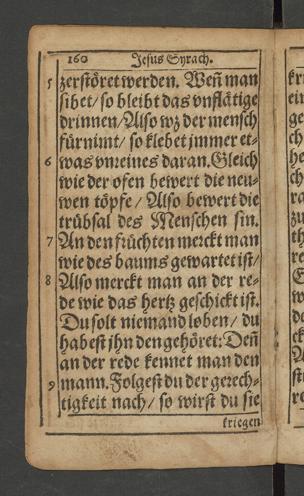 160 Jesus Syrach.
5 zerstöret werden. Weñ man
sibet/ so bleibt das vnflätige
drinnen/ Also wz der mensch
fürnimt/ so klebet jmmer et-
6 was vnreines daran. Gleich
wie der ofen bewert die neu-
wen töpfe/ Also bewert die
trübsal des Menschen sin.
7 An den früchten merckt man
wie des baums gewartet ist/
8 Also merckt man an der re-
de wie das hertz geschickt ist.
Du solt niemand loben/ du
habest jhn den gehöret: Deñ
an der rede kennet man den
9 mann. Folgest du der gerech-
tigkeit nach/ so wirst du sie
kriegen